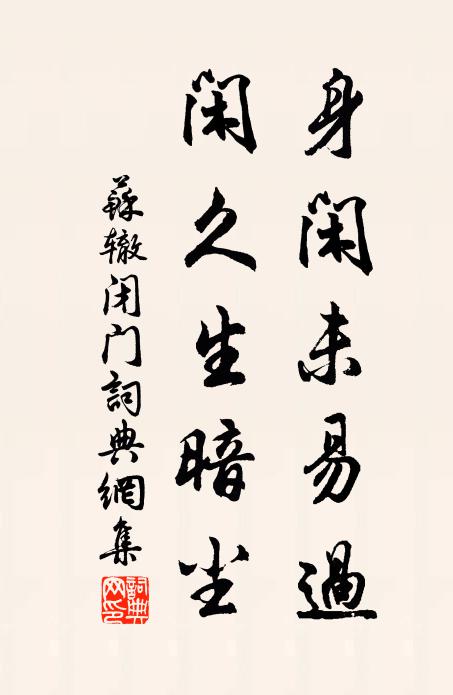 身闲未易過
闲久生暗尘
蘇辙闭门詞典網集
詞典网印